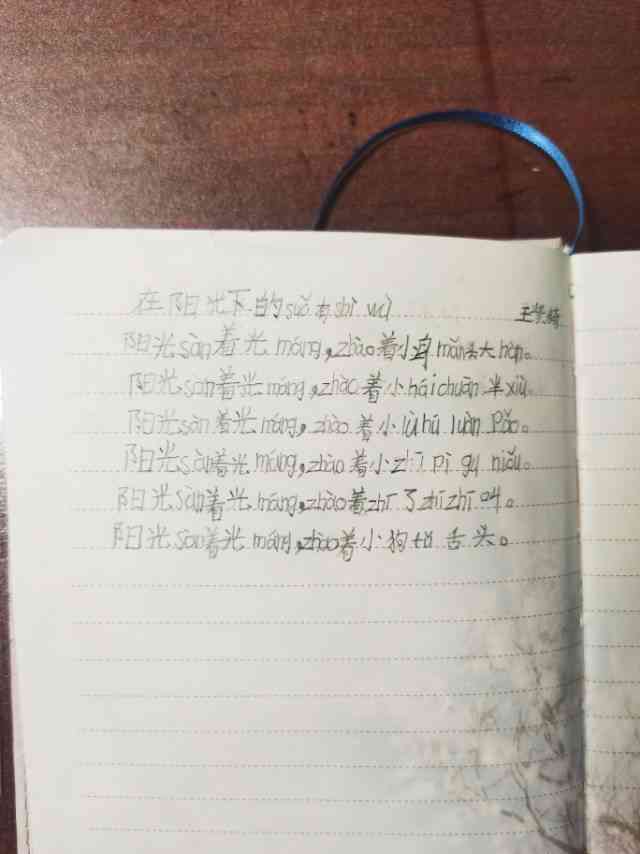 在阳光下的suǒ有shì wù 王
阳光sàn着光máng,zhào着小mǎn头大hàn。
阳光sàn着光máng,zhào着小hái chuān半xiù。
阳光sàn着光máng,zhào着小lù hū luàn Pǎo。
阳光sàn着光máng,zhào着小zhī pì gu niǔ。
阳光sàn着光máng,zhào着zhī了zhī zhī叫。
阳光sàn着光máng,zhào着小狗tǔ舌头。